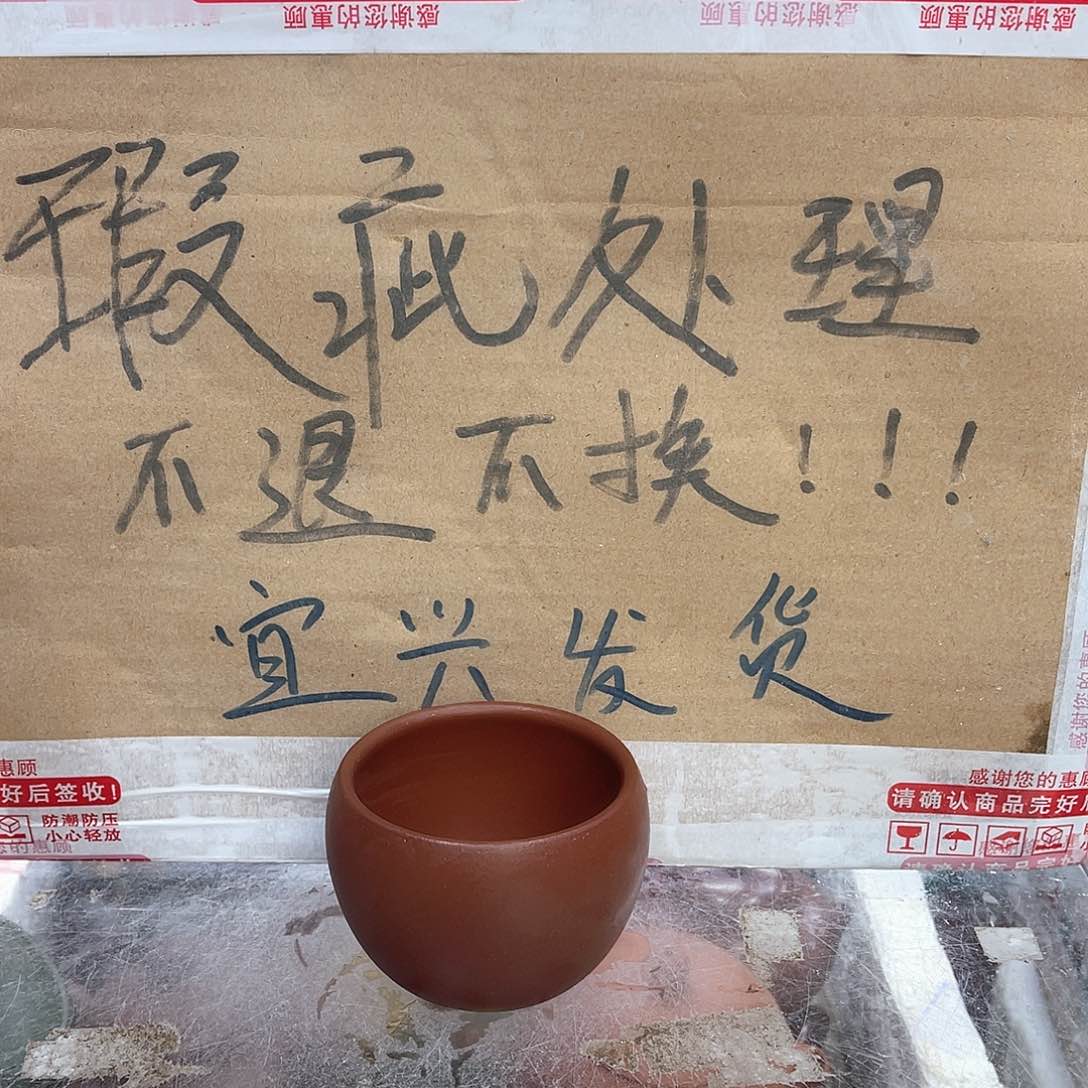 感谢您的惠顾 感谢您的惠顾 感谢您的惠顾 感谢您的惠顾
瑕疵处理
不退不换!!!
宜兴发货
惠顾
好后签收!
防潮防压
小心轻放
感谢您的惠顾
请确认商品完好
感谢您的惠